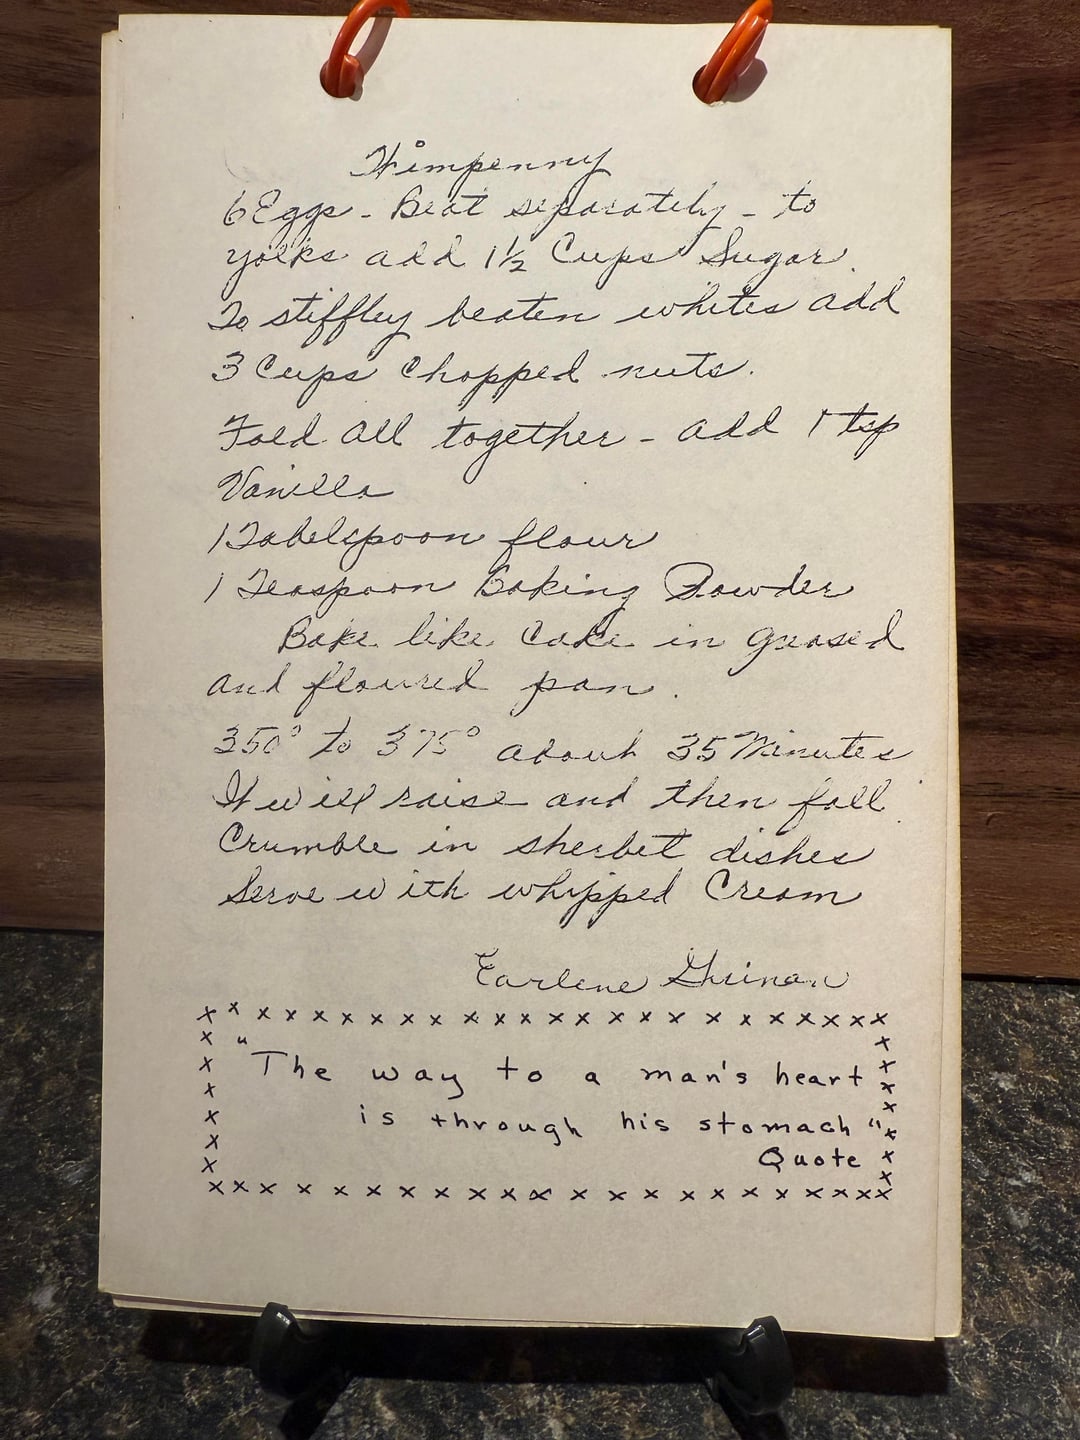 Himpenny
6 Eggs - Beat separately - to
yolks add 1½ Cups Sugar.
To stiffley beaten whites add
3 Cups Chopped nuts.
Fold all together - add 1 tsp
Vanilla
1 Tabelspoon flour
1 Teaspoon Baking Powder
Bake like Cake in greased
and floured pan.
350° to 375° about 35 Minutes
It will raise and then fall.
Crumble in sherbet dishes
Serve with whipped Cream
Earlene
"The way to a man's heart
is through his stomach"
Quote